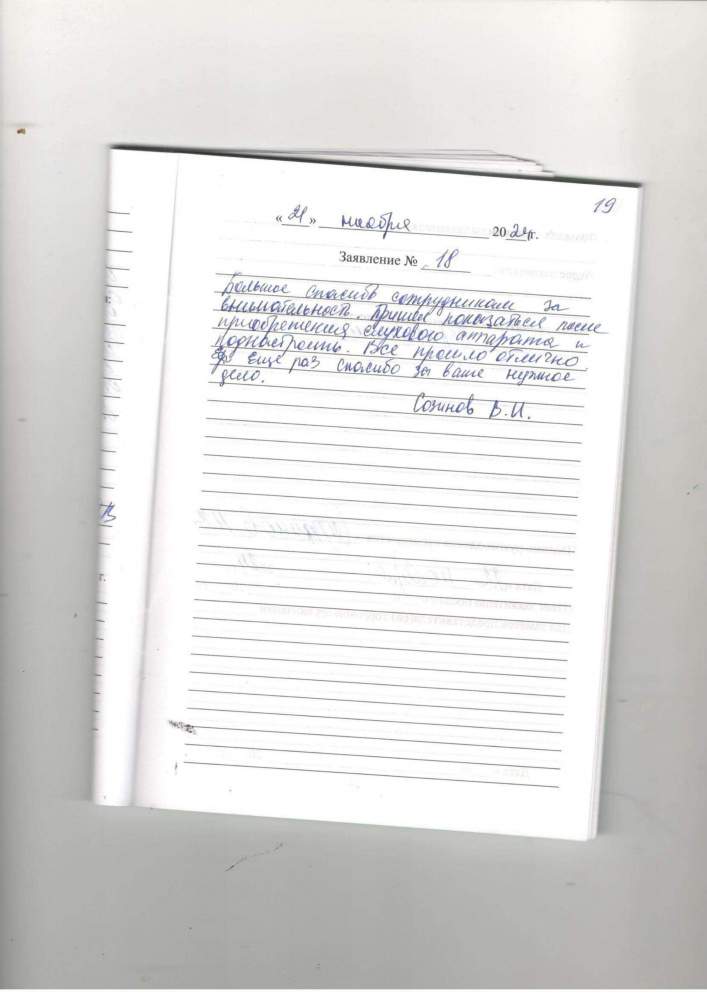 19
« 21 » ноября 2024г.
Заявление № 18
Большое спасибо сотрудникам за
внимательность. Пришёл показаться после
приобретения слухового аппарата и
поднастроить. Все прошло отлично.
Еще раз спасибо за ваше нужное
дело.
Созинов В.И.